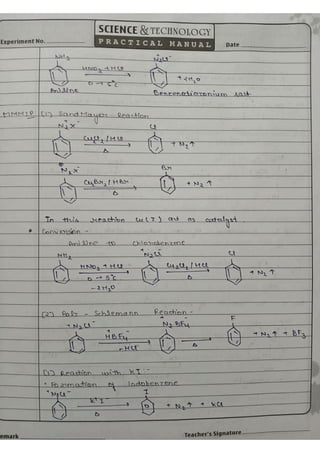 SCIENCE & TECHNOLOGY
PRACTICAL MANUAL
Experiment No.
Date
NH₂
N₂Cl⁻
HNO₂ + HCl
0 → 5°C
+ 2H₂O
Aniline
Benzenediazonium salt
(1) Sandmayer Reaction
N₂X⁻
Cl
Cu₂Cl₂ / HCl
Δ
+ N₂ ↑
N₂X⁻
Br
CuBr₂ / HBr
Δ
+ N₂ ↑
In this reaction Cu(I) act as catalyst.
Conversion -
Aniline to Chlorobenzene
NH₂
N₂Cl⁻
Cl
HNO₂ + HCl
0 → 5°C
-2H₂O
Cu₂Cl₂ / HCl
Δ
+ N₂ ↑
(2) Balz - Schiemann Reaction -
+ N₂Cl⁻
N₂BF₄⁻
F
HBF₄
- HCl
Δ
+ N₂ ↑ + BF₃
Reaction with KI -
• Formation of Iodobenzene
⁺N₂Cl⁻
I
K⁺I⁻
Δ
+ N₂ ↑ + KCl
emark
Teacher's Signature